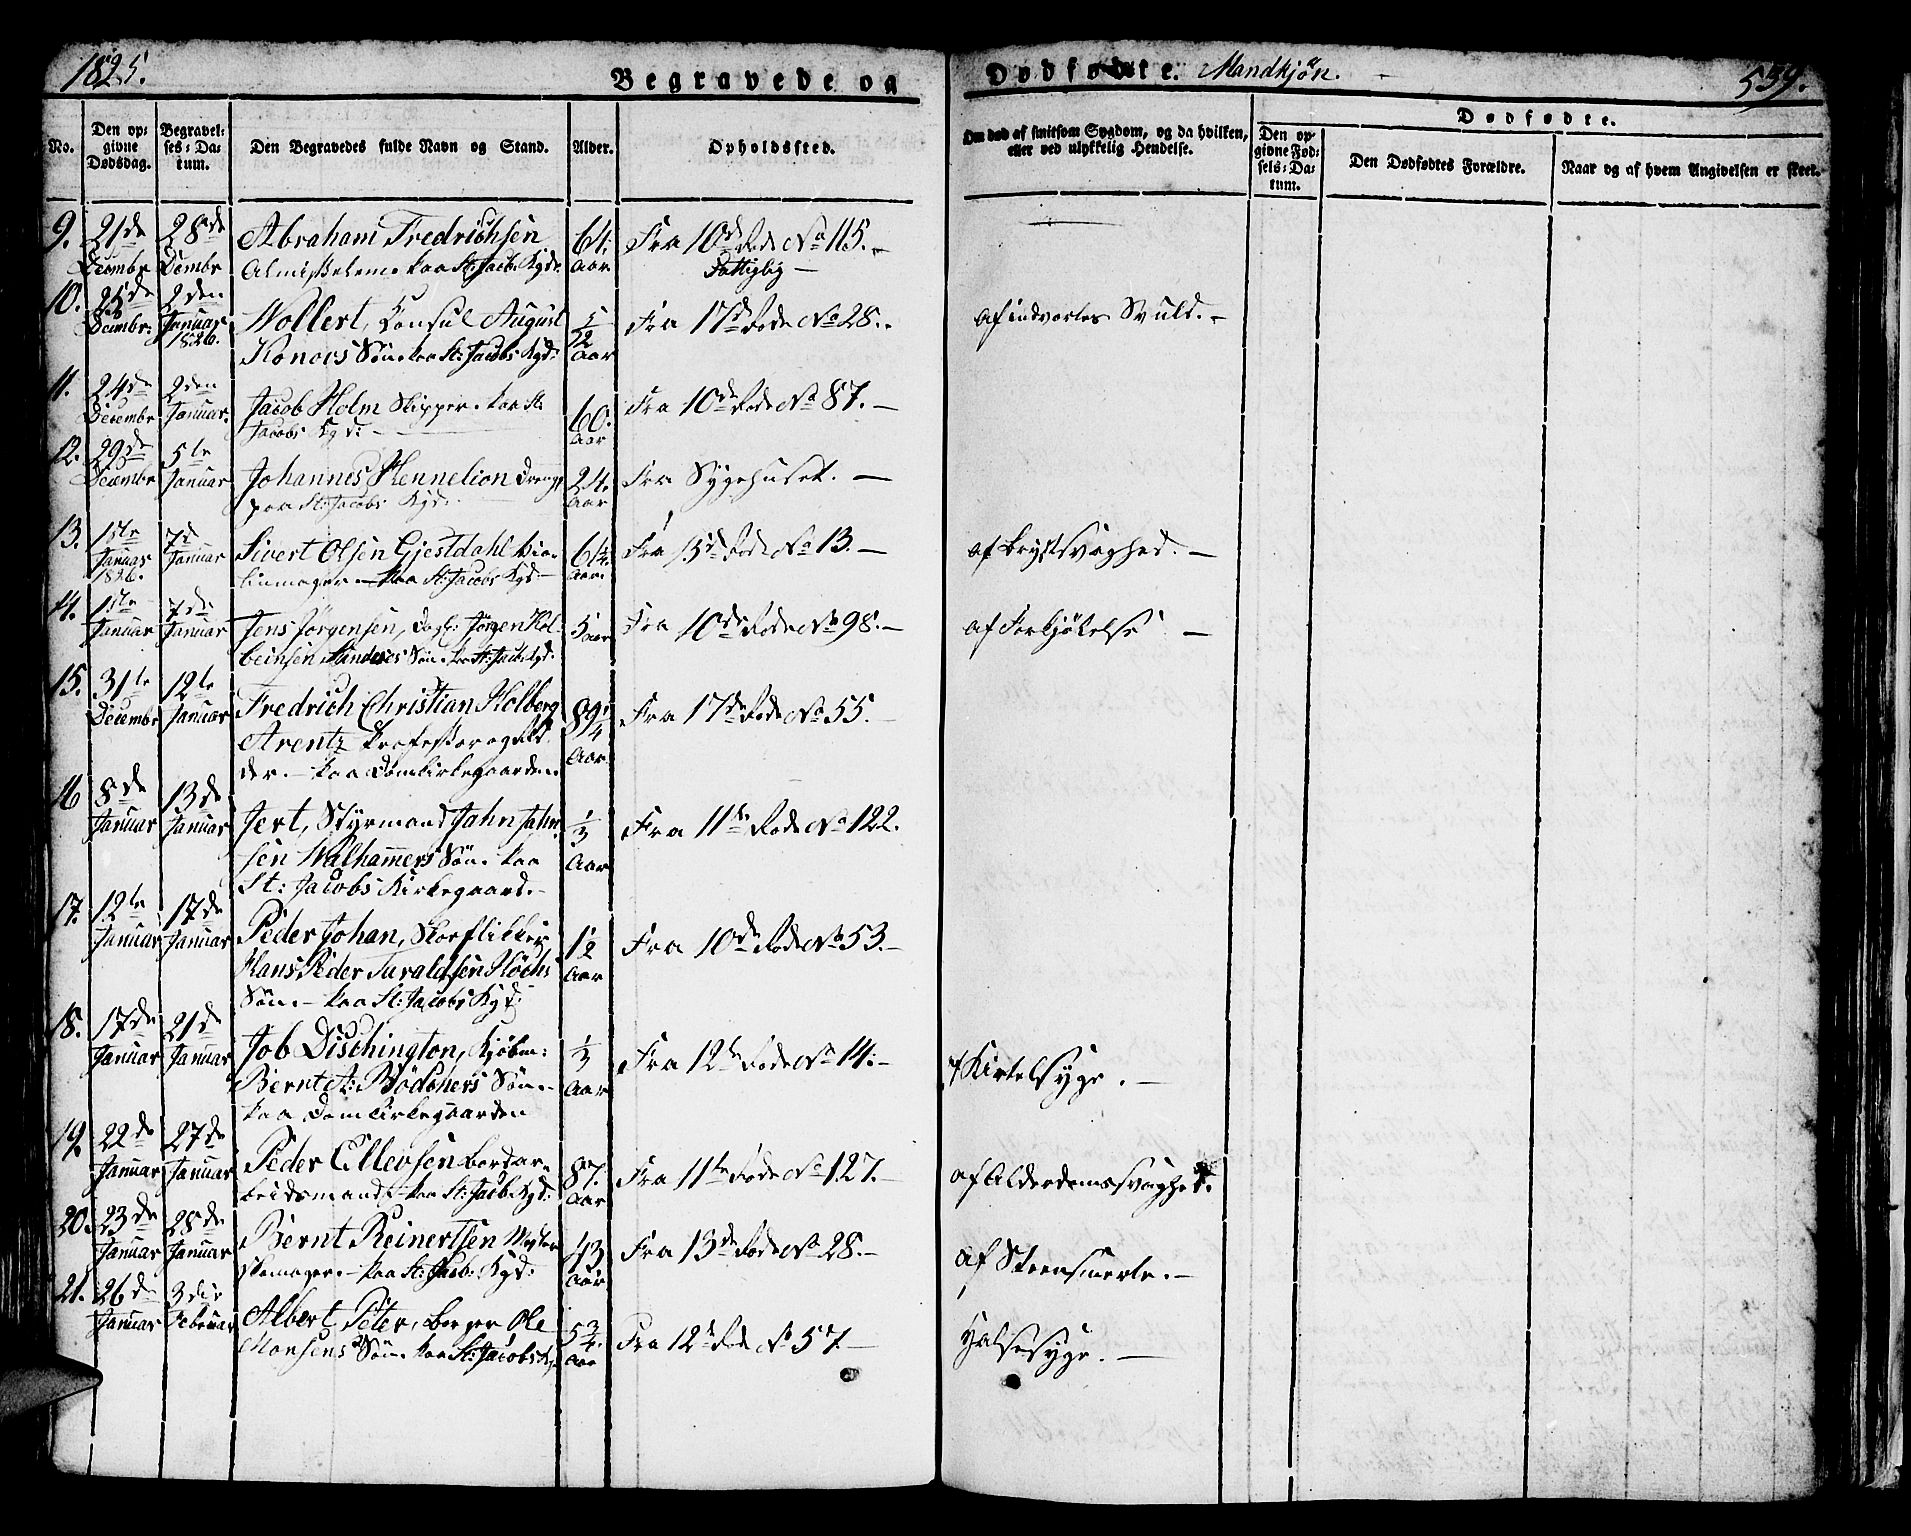 1825.
Begravede og
Dødfødte. Mandkjøn.
559.
No.
Den op-
givne
Dødsdag.
Begravel-
ses-Da-
tum.
Den Begravedes fulde Navn og Stand.
Alder.
Opholdssted.
Om død af smitsom Sygdom, og da hvilken,
eller ved ulykkelig Hendelse.
Dødfødte.
Den op-
givne Fød-
sels-Da-
tum.
Den Dødfødtes Forældre.
Naar og af hvem Angivelsen er skeet.
9. 21de 28de Abraham Fredrichsen 64. Fra 10de Rode No 115.
Decembr Decembr paa St: Jacobs Kgd. Aar Fattiglig
10. 25de 2den
Decembr: Januar Wollert, Consul August 5/12 Fra 17de Rode No 28. af indvortes Svuld.
1826. Konows Søn. paa St: Jacobs Kgd: Aar
11. 24de 2den Jacob Holm Skipper. paa St: 60. Fra 10de Rode No 87.
Decembr Januar. Jacobs Kgd: Aar
12. 29de 5te Johannes Hennelion Dreng 24. Fra Sygehuset.
Decembr Januar paa St: Jacobs Kgd: Aar
13. 1ste 7de Sivert Olsen Gjestdahl Vio- 64 Fra 13de Rode No 13. af Brystsvaghed.
Januar Januar linmager. paa St: Jacobs Kgd: Aar.
1826.
14. 1ste 7de Jens Jørgensen, Dagk: Jørgen Hol- 5 Aar Fra 10de Rode No 98. af Forkjølelse
Januar Januar beinsen Sanderes Søn. paa St: Jacobs Kgd:
15. 31te 12te Fredrich Christian Holberg 89 1/4 Fra 17de Rode No 55.
Decembr Januar Arentz Professor og Rid-
der. paa Domkirkegaarden. Aar
16 8de 13de Jert, Styrmand Jahn Jahn- 1/3 Fra 11te Rode No 122.
Januar Januar sen Walhammers Søn. paa Aar
St: Jacobs Kirkegaard.
17. 12te 17de Peder Johan, Skoeflikker 1/2 Fra 10de Rode No 53.
Januar Januar Hans Peder Turaldsen Høchs Aar
Søn. paa St: Jacobs Kgd:
18. 17de 21de Job Dischington, Kjøbm: 1/3 Fra 12te Rode No 14. af Kirtelsyge.
Januar Januar Bernt A: Bødchers Søn. Aar
paa Domkirkegaarden
19. 22de 27de Peder Ellevsen Bordar- 87. Fra 11te Rode No 127. af Alderdomssvaghed.
Januar Januar beidsmand. paa St: Jacob: Kgd: Aar
20. 23de 28de Bernt Reinertsen Mester 43 Fra 13de Rode No 28. af Steensmerte.
Januar Januar skomager. paa St: Jacob: Kgd: Aar
21. 26de 3die Albert Peter, Borger Ole 5 3/4 Fra 12te Rode No 57. Halssyge.
Januar Februar Monsens Søn. paa St: Jacobs Kgd Aar